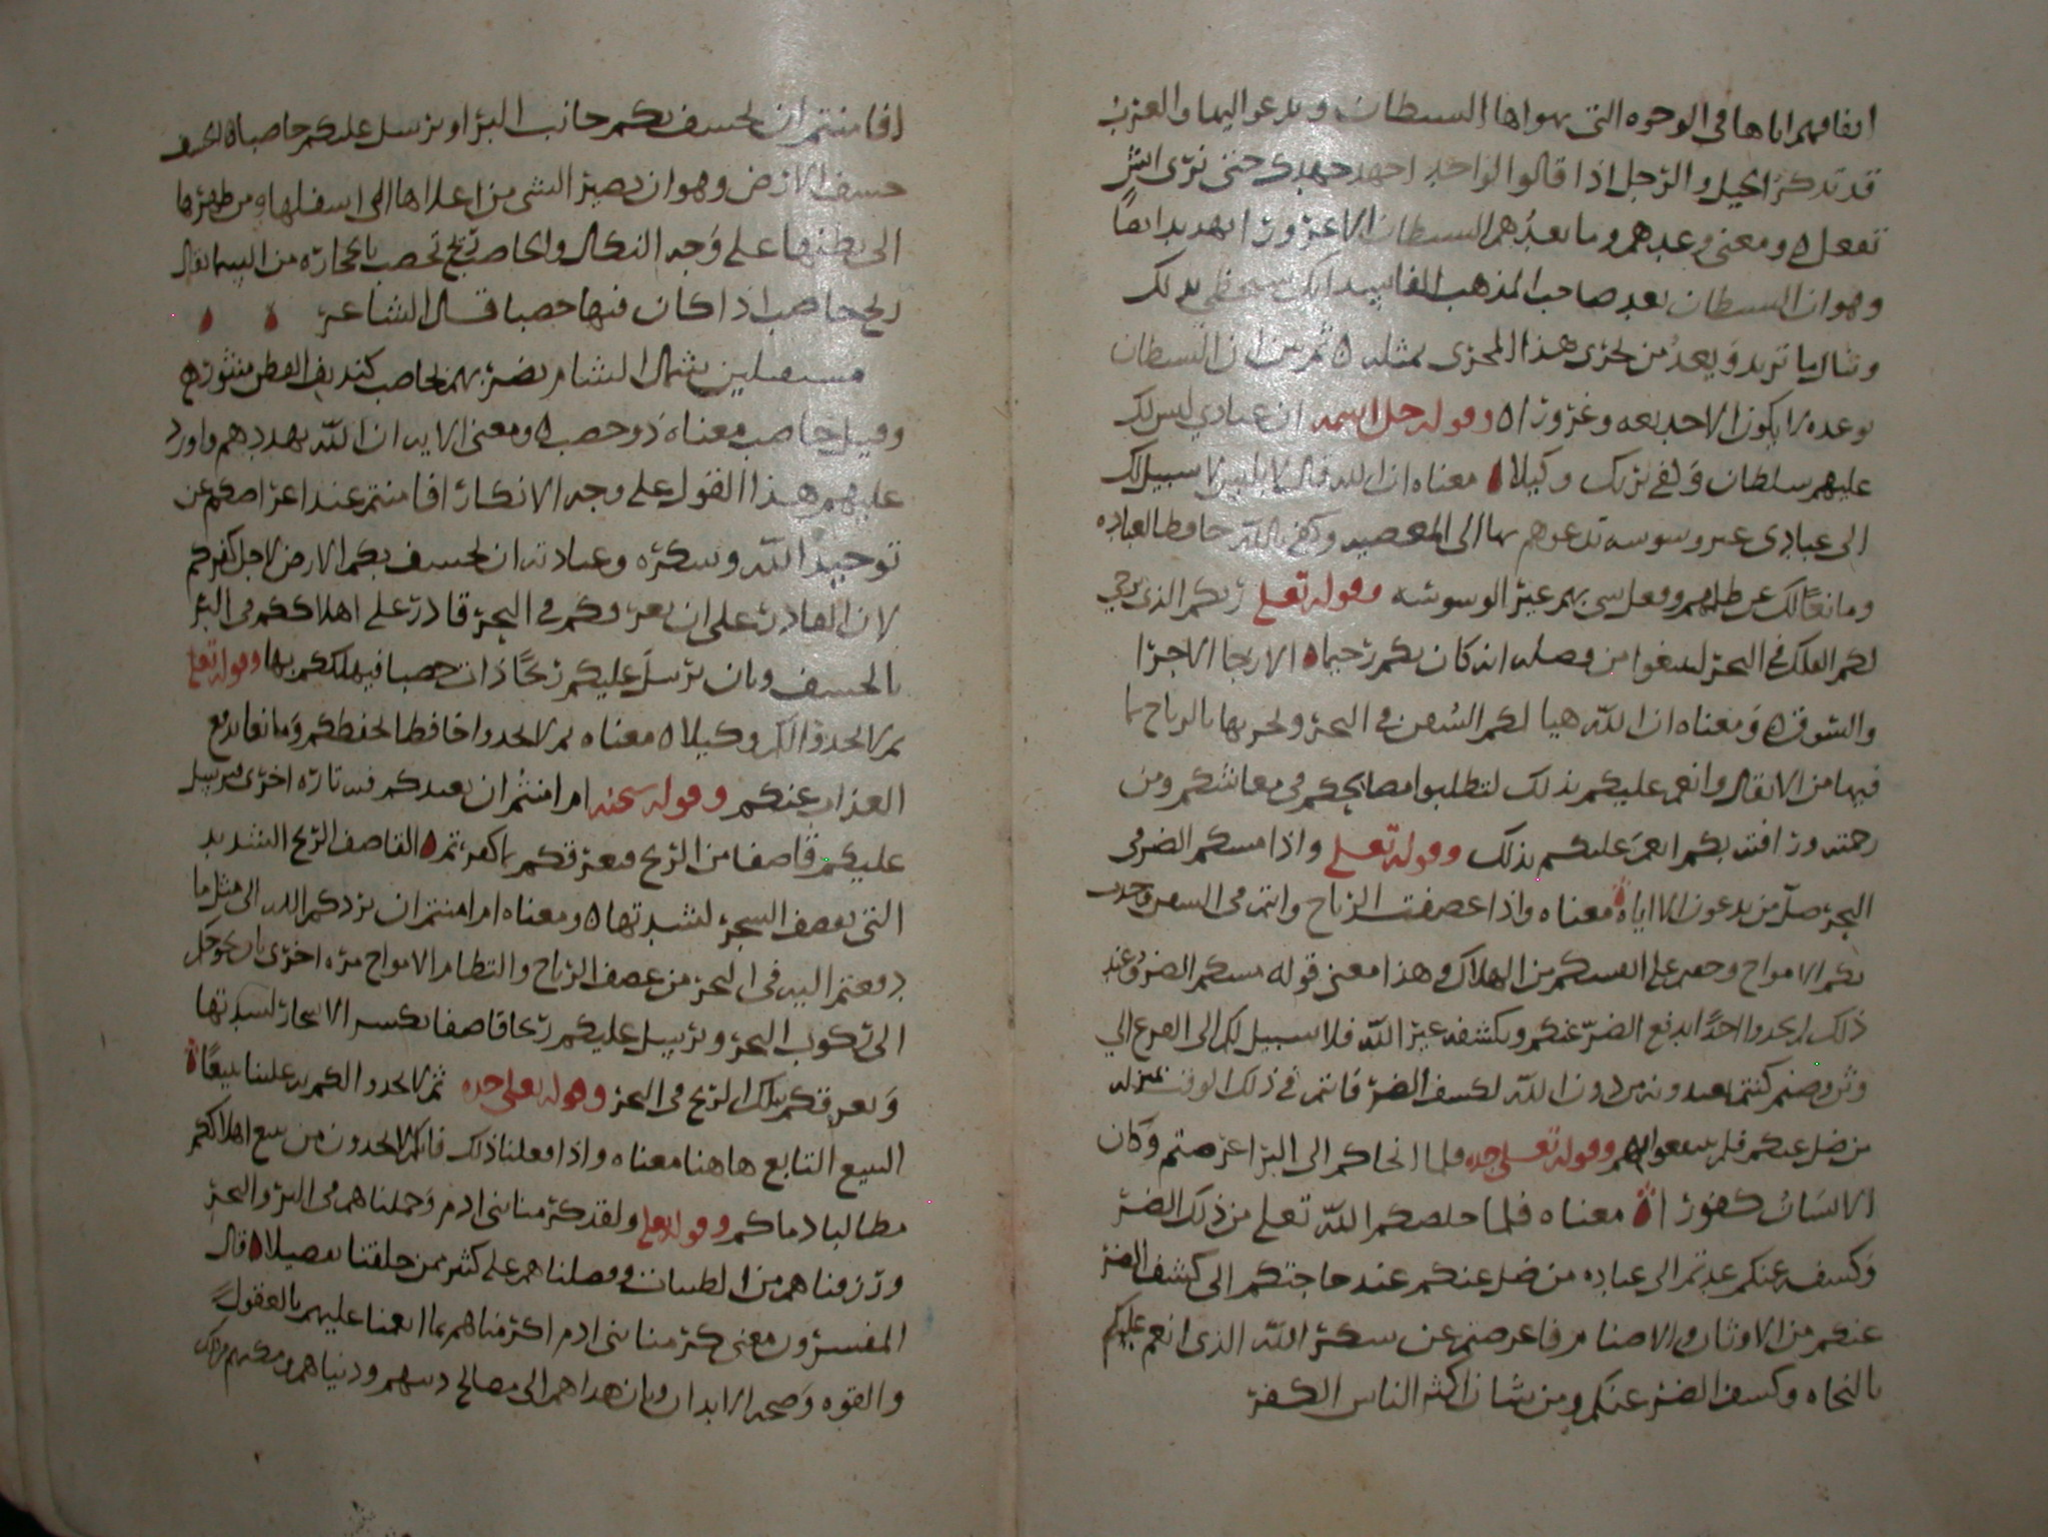 انفاقهم اياها في الوجوه التي يهواها الشيطان ويدعو اليها والعرب
قد تذكر الخيل والرجل اذا قالوا لواحد اجهد جهدك حتى نرى ايش
تفعل ه ومعنى وعدهم وما يعدهم الشيطان الا غرورا تهديد ايضا
وهو ان الشيطان يعد صاحب المذهب الفاسد انك ستحظى بذلك
وتنال ما تريد ويعد من يجرى هذا المجرى بمثله ه ثم بين ان الشيطان
بوعده لا يكون الا خديعه وغرورا ه وقوله جل اسمه ان عبادي ليس لك
عليهم سلطان وكفى بربك وكيلا ه معناه ان الله قال لابليس لا سبيل لك
الى عبادى غير وسوسه تدعوهم بها الى المعصيه وكفى بالله حافظا لعباده
ومانعا لك عن ظلمهم وفعل شي بهم غير الوسوسه وقوله تعلى ربكم الذي يزجي
لكم الفلك في البحر لتبتغوا من فضله انه كان بكم رحيما ه الازجا الاجرا
والسوق ه ومعناه ان الله هيا لكم السفن في البحر ويجريها بالرياح بما
فيها من الاثقال وانعم عليكم بذلك لتطلبوا مصالحكم في معاشكم ومن
رحمته ورافته بكم انعم عليكم بذلك وقوله تعلى واذا مسكم الضر في
البحر ضل من تدعون الا اياه ه معناه واذا عصفت الرياح وانتم في السفن وخبت
بكم الامواج وخفتم على انفسكم من الهلاك وهذا معنى قوله مسكم الضر وعند
ذلك لم تجدوا احدا يدفع الضر عنكم ويكشفه غير الله فلا سبيل لكم الى الفزع الى
وثن وصنم كنتم تعبدونه من دون الله لكشف الضر فانتم في ذلك الوقت بمنزله
من ضل عنكم فلم تنتفعوا بهم وقوله تعلى جده فلما انجاكم الى البر اعرضتم وكان
الانسان كفورا ه معناه فلما خلصكم الله تعلى من ذلك الضر
وكشفه عنكم عدتم الى عباده من ضل عنكم عند حاجتكم الى كشف الضر
عنكم من الاوثان والاصنام فاعرضتم عن شكر الله الذى انعم عليكم
بالنجاه وكشف الضر عنكم ومن شان اكثر الناس الكفر
افامنتم ان يخسف بكم جانب البر او يرسل عليكم حاصبا ه الخسف
خسف الارض وهو ان يصير الشي من اعلاها الى اسفلها ومن ظهرها
الى بطنها على وجه النكال والحاصب ريح تحصب بالحجاره من السما يقال
ريح حاصب اذا كان فيها حصبا قال الشاعر
مستقبلين شمال الشام تضربهم بحاصب كنديف القطن منثور ه
وقيل حاصب معناه ذو حصب ه ومعنى الايه ان الله يهددهم واورد
عليهم هذا القول على وجه الانكار افامنتم عند اعراضكم عن
توحيد الله وشكره وعبادته ان يخسف بكم الارض لاجل كفركم
لان القادر على ان يغرقكم في البحر قادر على اهلاككم في البر
بالخسف وبان يرسل عليكم ريحا ذات حصبا فيهلككم بها وقوله تعلى
ثم لا تجدوا لكم وكيلا ه معناه ثم لا تجدوا حافظا يحفظكم ومانعا يدفع
العذاب عنكم وقوله سبحنه ام امنتم ان يعيدكم فيه تاره اخرى فيرسل
عليكم قاصفا من الريح فيغرقكم بما كفرتم ه القاصف الريح الشديد
التي تقصف الشجر لشدتها ه ومعناه ام امنتم ان يردكم الله الى مثل ما
دفعتم اليه في البحر من عصف الرياح والتطام الامواج مره اخرى بان يحوجكم
الى ركوب البحر ويرسل عليكم ريحا قاصفا يكسر الاشجار لشدتها
ويغرقكم بتلك الريح في البحر وقوله تعلى جده ثم لا تجدوا لكم به علينا تبيعا ه
التبيع التابع هاهنا معناه واذا فعلنا ذلك فانكم لا تجدون من يتبع اهلاككم
مطالبا بدمائكم وقوله تعلى ولقد كرمنا بنى ادم وحملناهم في البر والبحر
ورزقناهم من الطيبات وفضلناهم على كثير ممن خلقنا تفضيلا ه قال
المفسرون معنى كرمنا بنى ادم اكرمناهم بما انعمنا عليهم بالعقول
والقوه وصحه الابدان وبان هداهم الى مصالح دينهم ودنياهم ومكنهم من ذلك